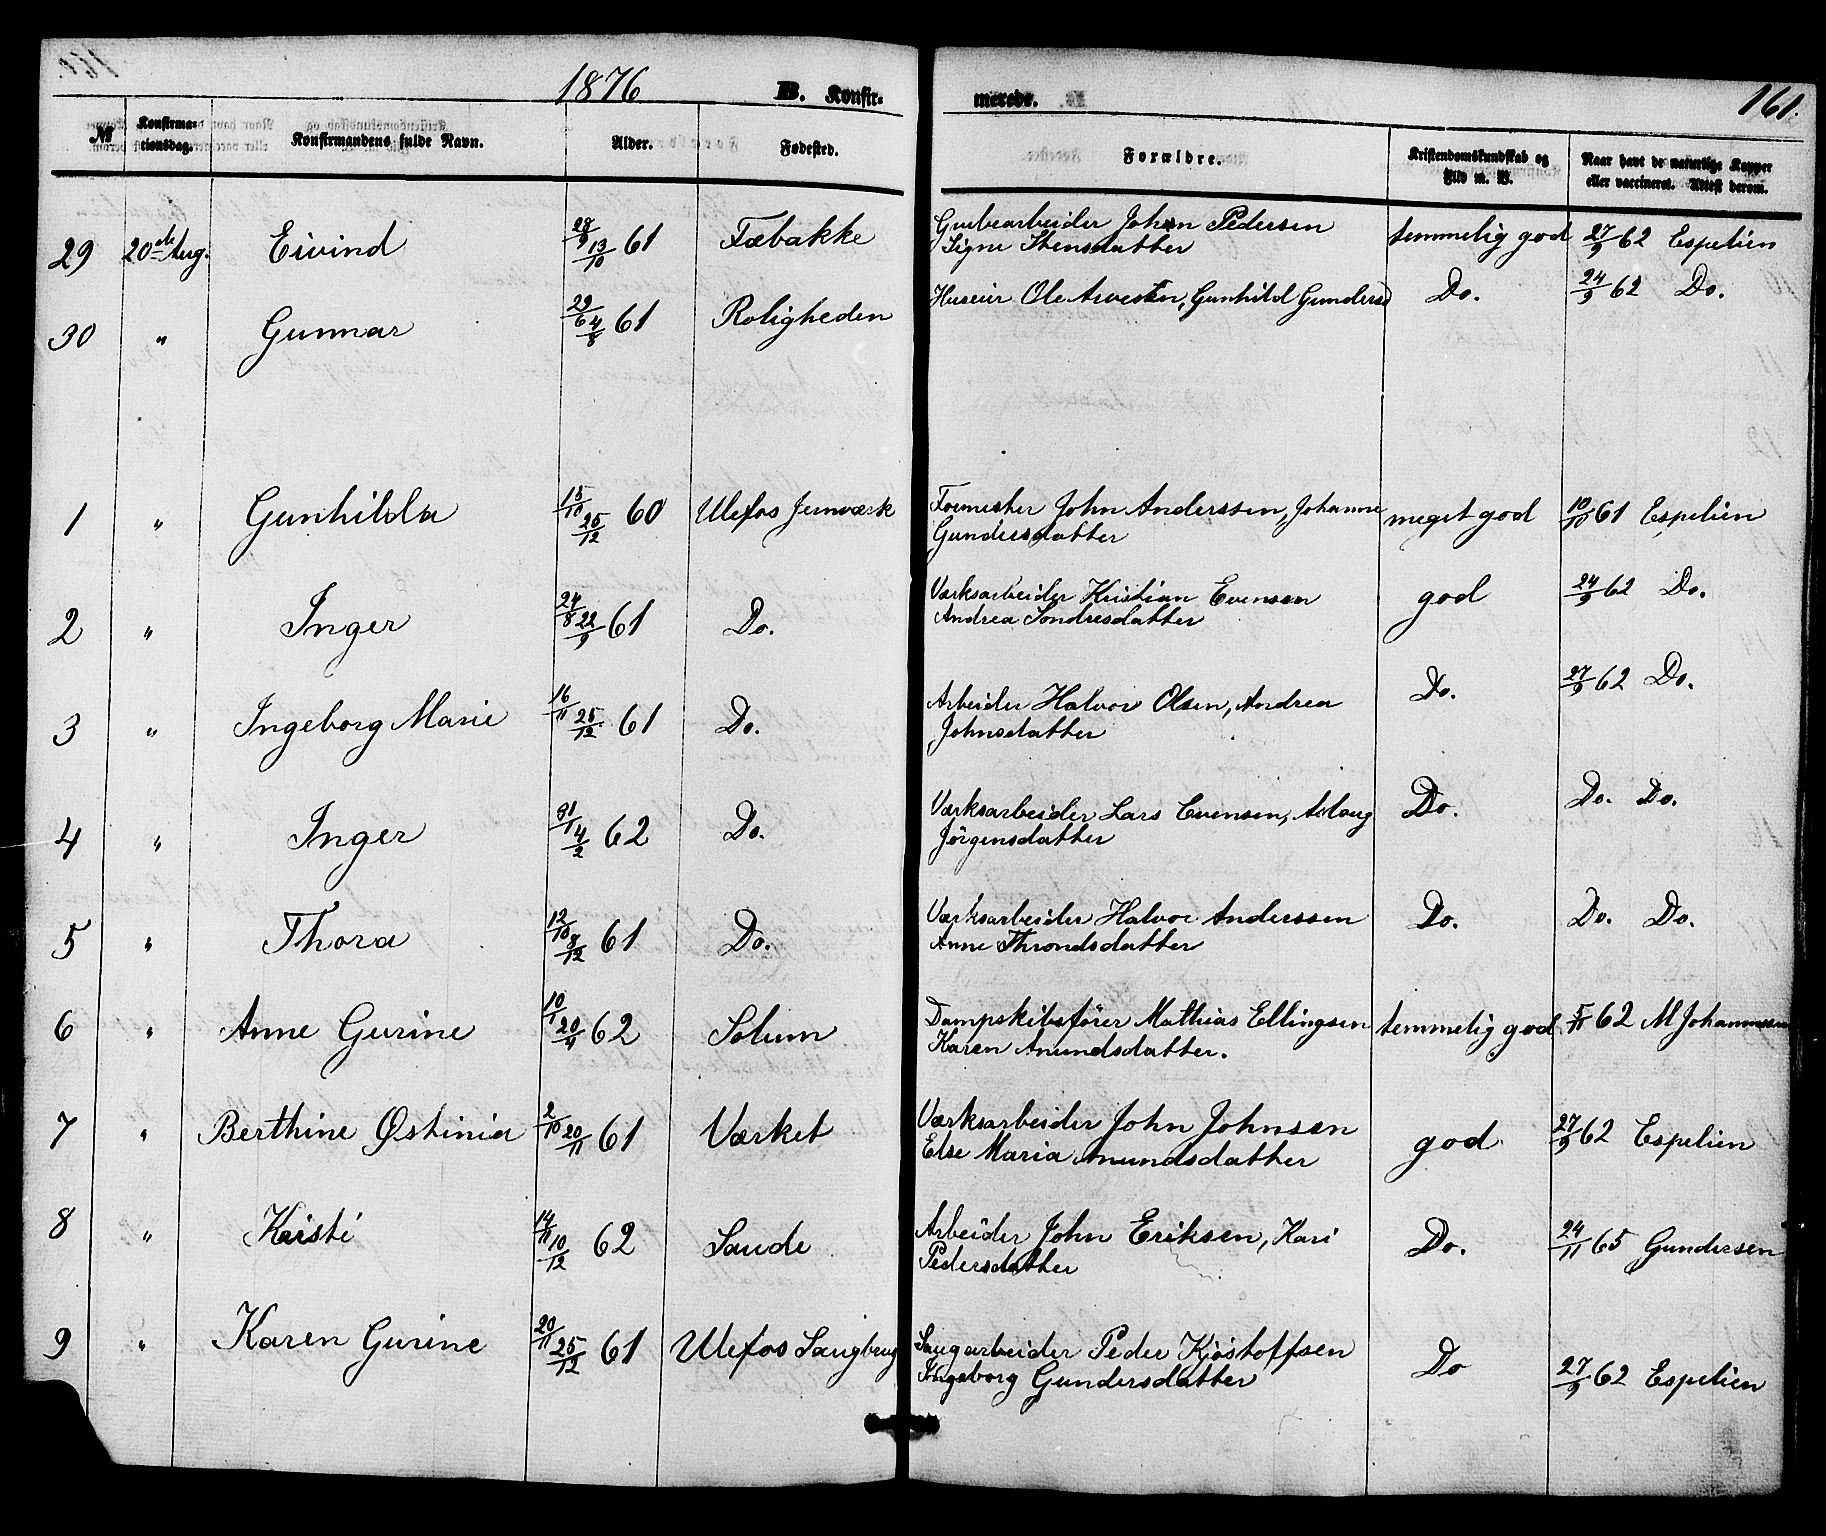 1876 B. Konfir- merede. 161.
№ Konfirma-tionsdag. Konfirmandens fulde Navn. Alder. Fødested. Forældre. Kristendomskundskab og Flid m. V. Naar havt de naturlige Kopper eller vaccineret. Attest derom.
29 20de Aug. Eivind 28/9 13/10 61 Fæbakke Grubearbeider Johan Pedersen temmelig god 27/9 62 Espelien
Signe Stensdatter
30 " Gunnar 29/6 4/8 61 Roligheden Huseier Ole Arvesen, Gunhild Gundersd Do. 24/9 62 Do.
1 " Gunhilda 15/10 25/12 60 Ulefos Jernværk Formester John Anderssen, Johanne meget god 10/10 61 Espelien
Gundersdatter
2 " Inger 24/8 22/9 61 Do. Værksarbeider Kristian Evensen god 24/9 62 Do.
Andrea Sondresdatter
3 " Ingeborg Marie 16/11 25/12 61 Do. Arbeider Halvor Olsen, Andrea Do. 27/9 62 Do.
Johnsdatter
4 " Inger 31/1 4/2 62 Do. Værksarbeider Lars Evensen, Aslaug Do. Do. Do.
Jörgensdatter
5 " Thora 12/10 8/12 61 Do. Værksarbeider Halvor Anderssen Do. Do. Do.
Anne Throndsdatter
6 " Anne Gurine 10/1 20/4 62 Solum Dampskibsfører Mathias Ellingsen temmelig god 5/11 62 M Johannessen
Karen Anundsdatter.
7 " Berthine Østinia 2/10 20/11 61 Værket Værksarbeider John Johnsen god 27/9 62 Espelien
Else Maria Anundsdatter
8 " Kristi 14/11 10/12 62 Saude Arbeider John Eriksen, Kari Do. 24/11 65 Gundersen
Pedersdatter
9 " Karen Gurine 20/11 25/12 61 Ulefos Saugbrug Saugarbeider Peder Kjøstoffsen Do 27/9 62 Espelien
Ingeborg Gundersdatter